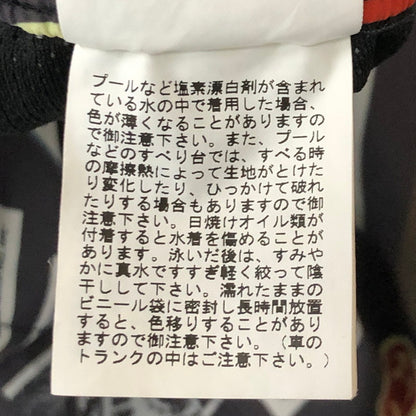 プールなど塩素漂白剤が含まれ
ている水の中で着用した場合、
色が薄くなることがありますの
で御注意下さい。また、プール
などのすべり台では、すべる時
の摩擦熱によって生地がとけた
り変化したり、ひっかけて破れ
たりする場合もありますので御
注意下さい。日焼けオイル類が
付着すると水着を傷めることが
あります。泳いだ後は、すみや
かに真水ですすぎ軽く絞って陰
干しして下さい。濡れたままの
ビニール袋に密封し長時間放置
すると、色移りすることがあり
ますので御注意下さい。（車の
トランクの中はご注意下さい。）